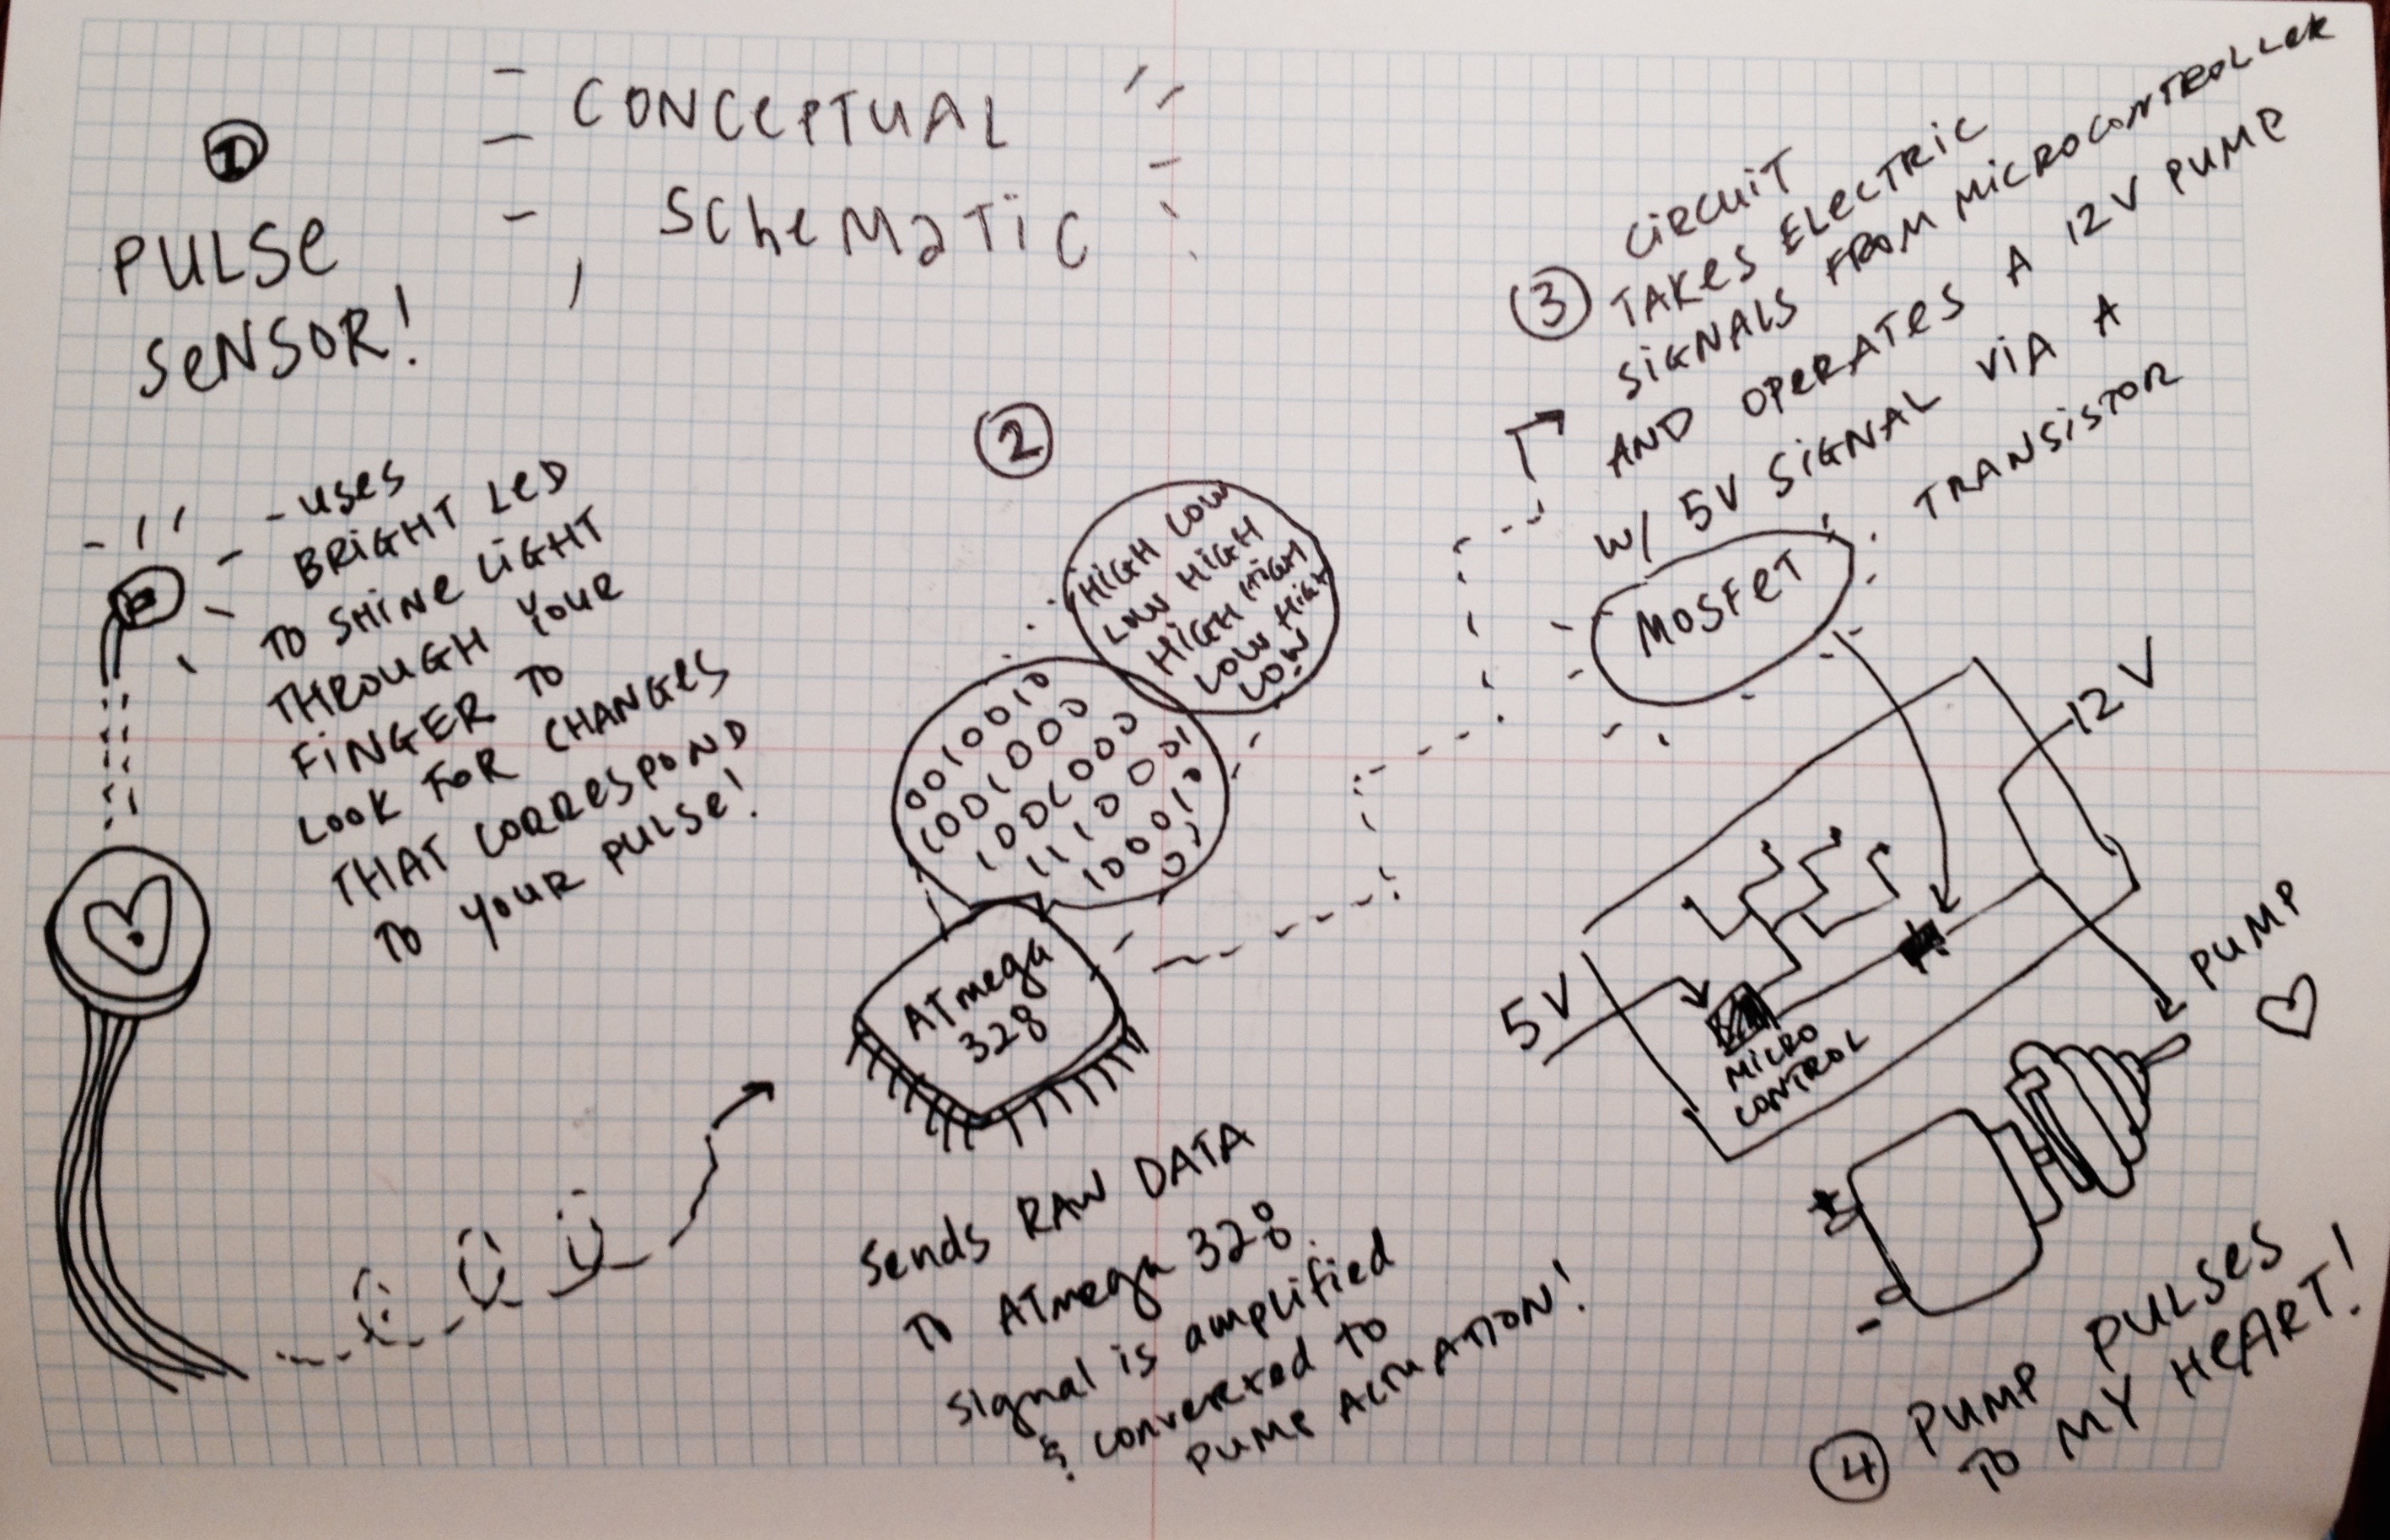 CONCEPTUAL
SCHEMATIC
1
PULSE
SENSOR!
- USES
BRIGHT LED
TO SHINE LIGHT
THROUGH YOUR
FINGER TO
LOOK FOR CHANGES
THAT CORRESPOND
TO YOUR PULSE!
2
HIGH LOW
LOW HIGH
HIGH HIGH
LOW HIGH
LOW
0010010
ATmega
328
Sends RAW DATA
TO ATmega 328.
Signal is amplified
& converted to
PUMP ACTUATION!
3
CIRCUIT
TAKES ELECTRIC
SIGNALS FROM MICROCONTROLLER
AND OPERATES A 12V PUMP
W/ 5V SIGNAL VIA A
TRANSISTOR
MOSFET
12V
5V
MICRO
CONTROL
PUMP
+
-
4 PUMP PULSES
TO MY HEART!